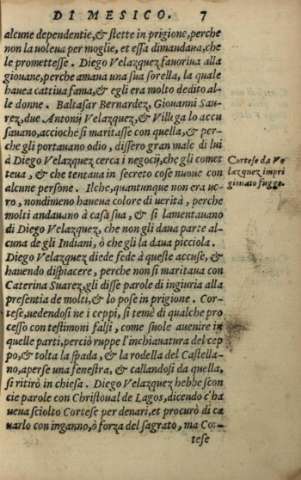 DI MESICO. 7
alcune dependentie, & stette in prigione, perche
non la uoleua per moglie, et essa dimandaua, che
le promettesse. Diego Velazquez fauoriua alla
giouane, perche amaua una sua sorella, la quale
haueua cattiua fama, & egli era molto dedito al-
le donne. Baltasar Bernardez, Giouanni Sau-
rez, due Antonij Velazquez, & Villega lo accu
sauano, accioche si maritasse con quella, & per-
che gli portauano odio, dissero gran male di lui
à Diego Velazquez cerca i negocij, che gli comet
teua, & che tentaua in secreto cose nuoue con
alcune persone. Ilche, quantunque non era ue-
ro, nondimeno haueua colore di uerità, perche
molti andauano à casà sua, & si lamentauano
di Diego Velazquez, che non gli daua parte al-
cuna de gli Indiani, ò che gli la daua picciola.
Diego Velazquez diede fede à queste accuse, &
hauendo dispiacere, perche non si maritaua con
Caterina Suarez, gli disse parole di ingiuria alla
presentia de molti, & lo pose in prigione. Cor-
tese, uedendosi ne i ceppi, si temè di qualche pro
cesso con testimoni falsi, come suole auenire in
quelle parti, perciò ruppe l'inchiauatura del cep
po, & tolta la spada, & la rodella del Castella-
no, aperse una fenestra, & callandosi da quella,
si ritirò in chiesa. Diego Velazquez hebbe scon
cie parole con Christoual de Lagos, dicendo c'ha
ueua sciolto Cortese per denari, et procurò di ca
uarlo con inganno, ò forza del sagrato, ma Cor-
tese
Cortese da Ve
lazquez impri
gionato fugge.